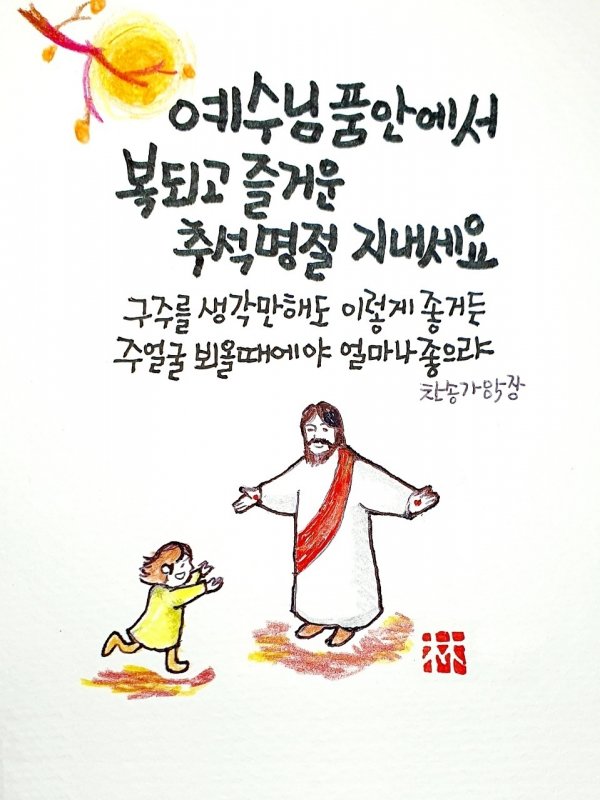 예수님 품안에서
복되고 즐거운
추석명절 지내세요
구주를 생각만해도 이렇게 좋거든
주얼굴 뵈올때에야 얼마나좋으랴
찬송가85장